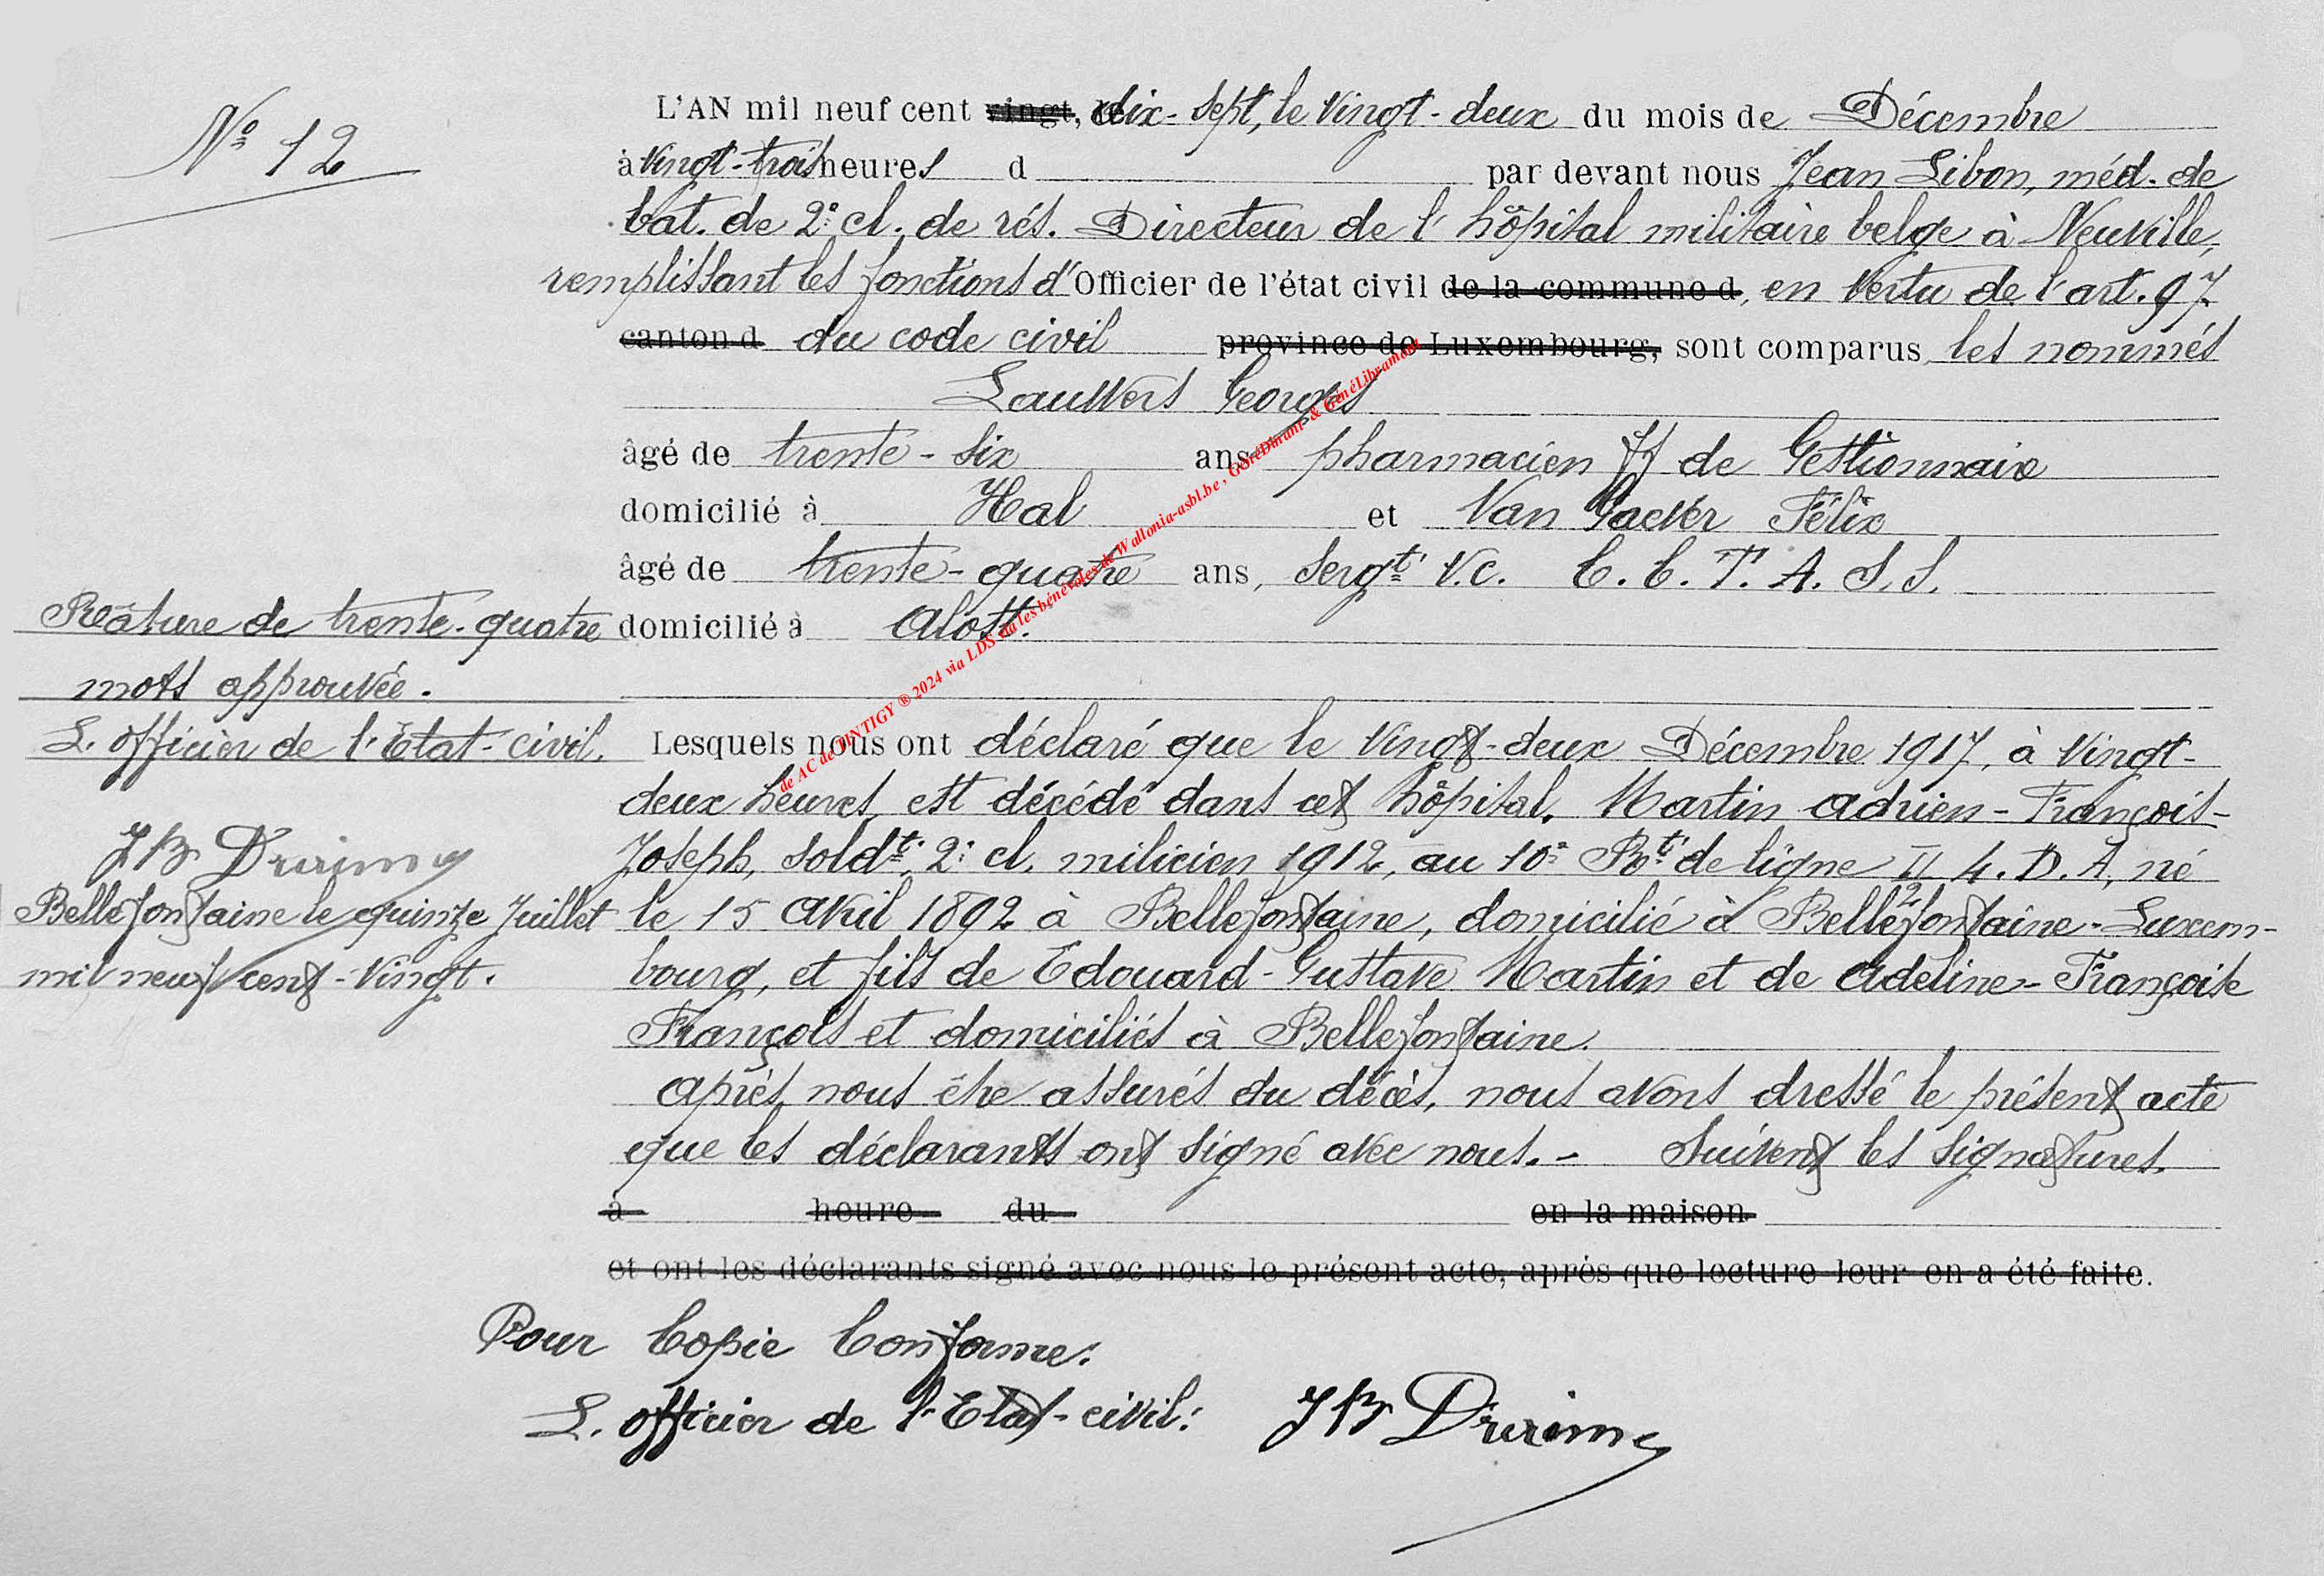 N° 12
L'AN mil neuf cent vingt, dix-sept, le vingt-deux du mois de Décembre
à vingt-trois heures d par devant nous Jean Libon, méd. de
bat. de 2e cl. de rés. Directeur de l'hôpital militaire belge à Neuville,
remplissant les fonctions d'Officier de l'état civil de la commune d, en vertu de l'art. 97
canton d du code civil province de Luxembourg, sont comparus les nommés
Lauwers Georges
âgé de trente-six ans pharmacien ff de Gestionnaire
domicilié à Hal et Van Félix
âgé de trente-quatre ans, Sergt V.C. C. C. T. A. S. S.
domicilié à Alost.
Lesquels nous ont déclaré que le vingt-deux Décembre 1917, à vingt-
deux heures, est décédé dans cet hôpital, Martin Adrien-François-
Joseph, soldt. 2e cl. milicien 1912, au 10e Rt de ligne II 4. D. A, né
le 15 avril 1892 à Bellefontaine, domicilié à Bellefontaine-Luxem-
bourg, et fils de Edouard-Gustave Martin et de Adeline-Françoise
François et domiciliés à Bellefontaine.
Après nous être assurés du décès, nous avons dressé le présent acte
que les déclarants ont signé avec nous.- Suivent les signatures.
à heure du en la maison
et ont les déclarants signé avec nous le présent acte, après que lecture leur en a été faite.
Rature de trente-quatre
mots approuvée.
L'officier de l'Etat-civil.
Bellefontaine le quinze Juillet
mil neuf cent-vingt.
Pour Copie Conforme:
L'officier de l'Etat-civil:
de AC de TINTIGY ® 2024 via LDS via les bénévoles de Wallonia-asbl.be, GénéDinant & GénéLibramont